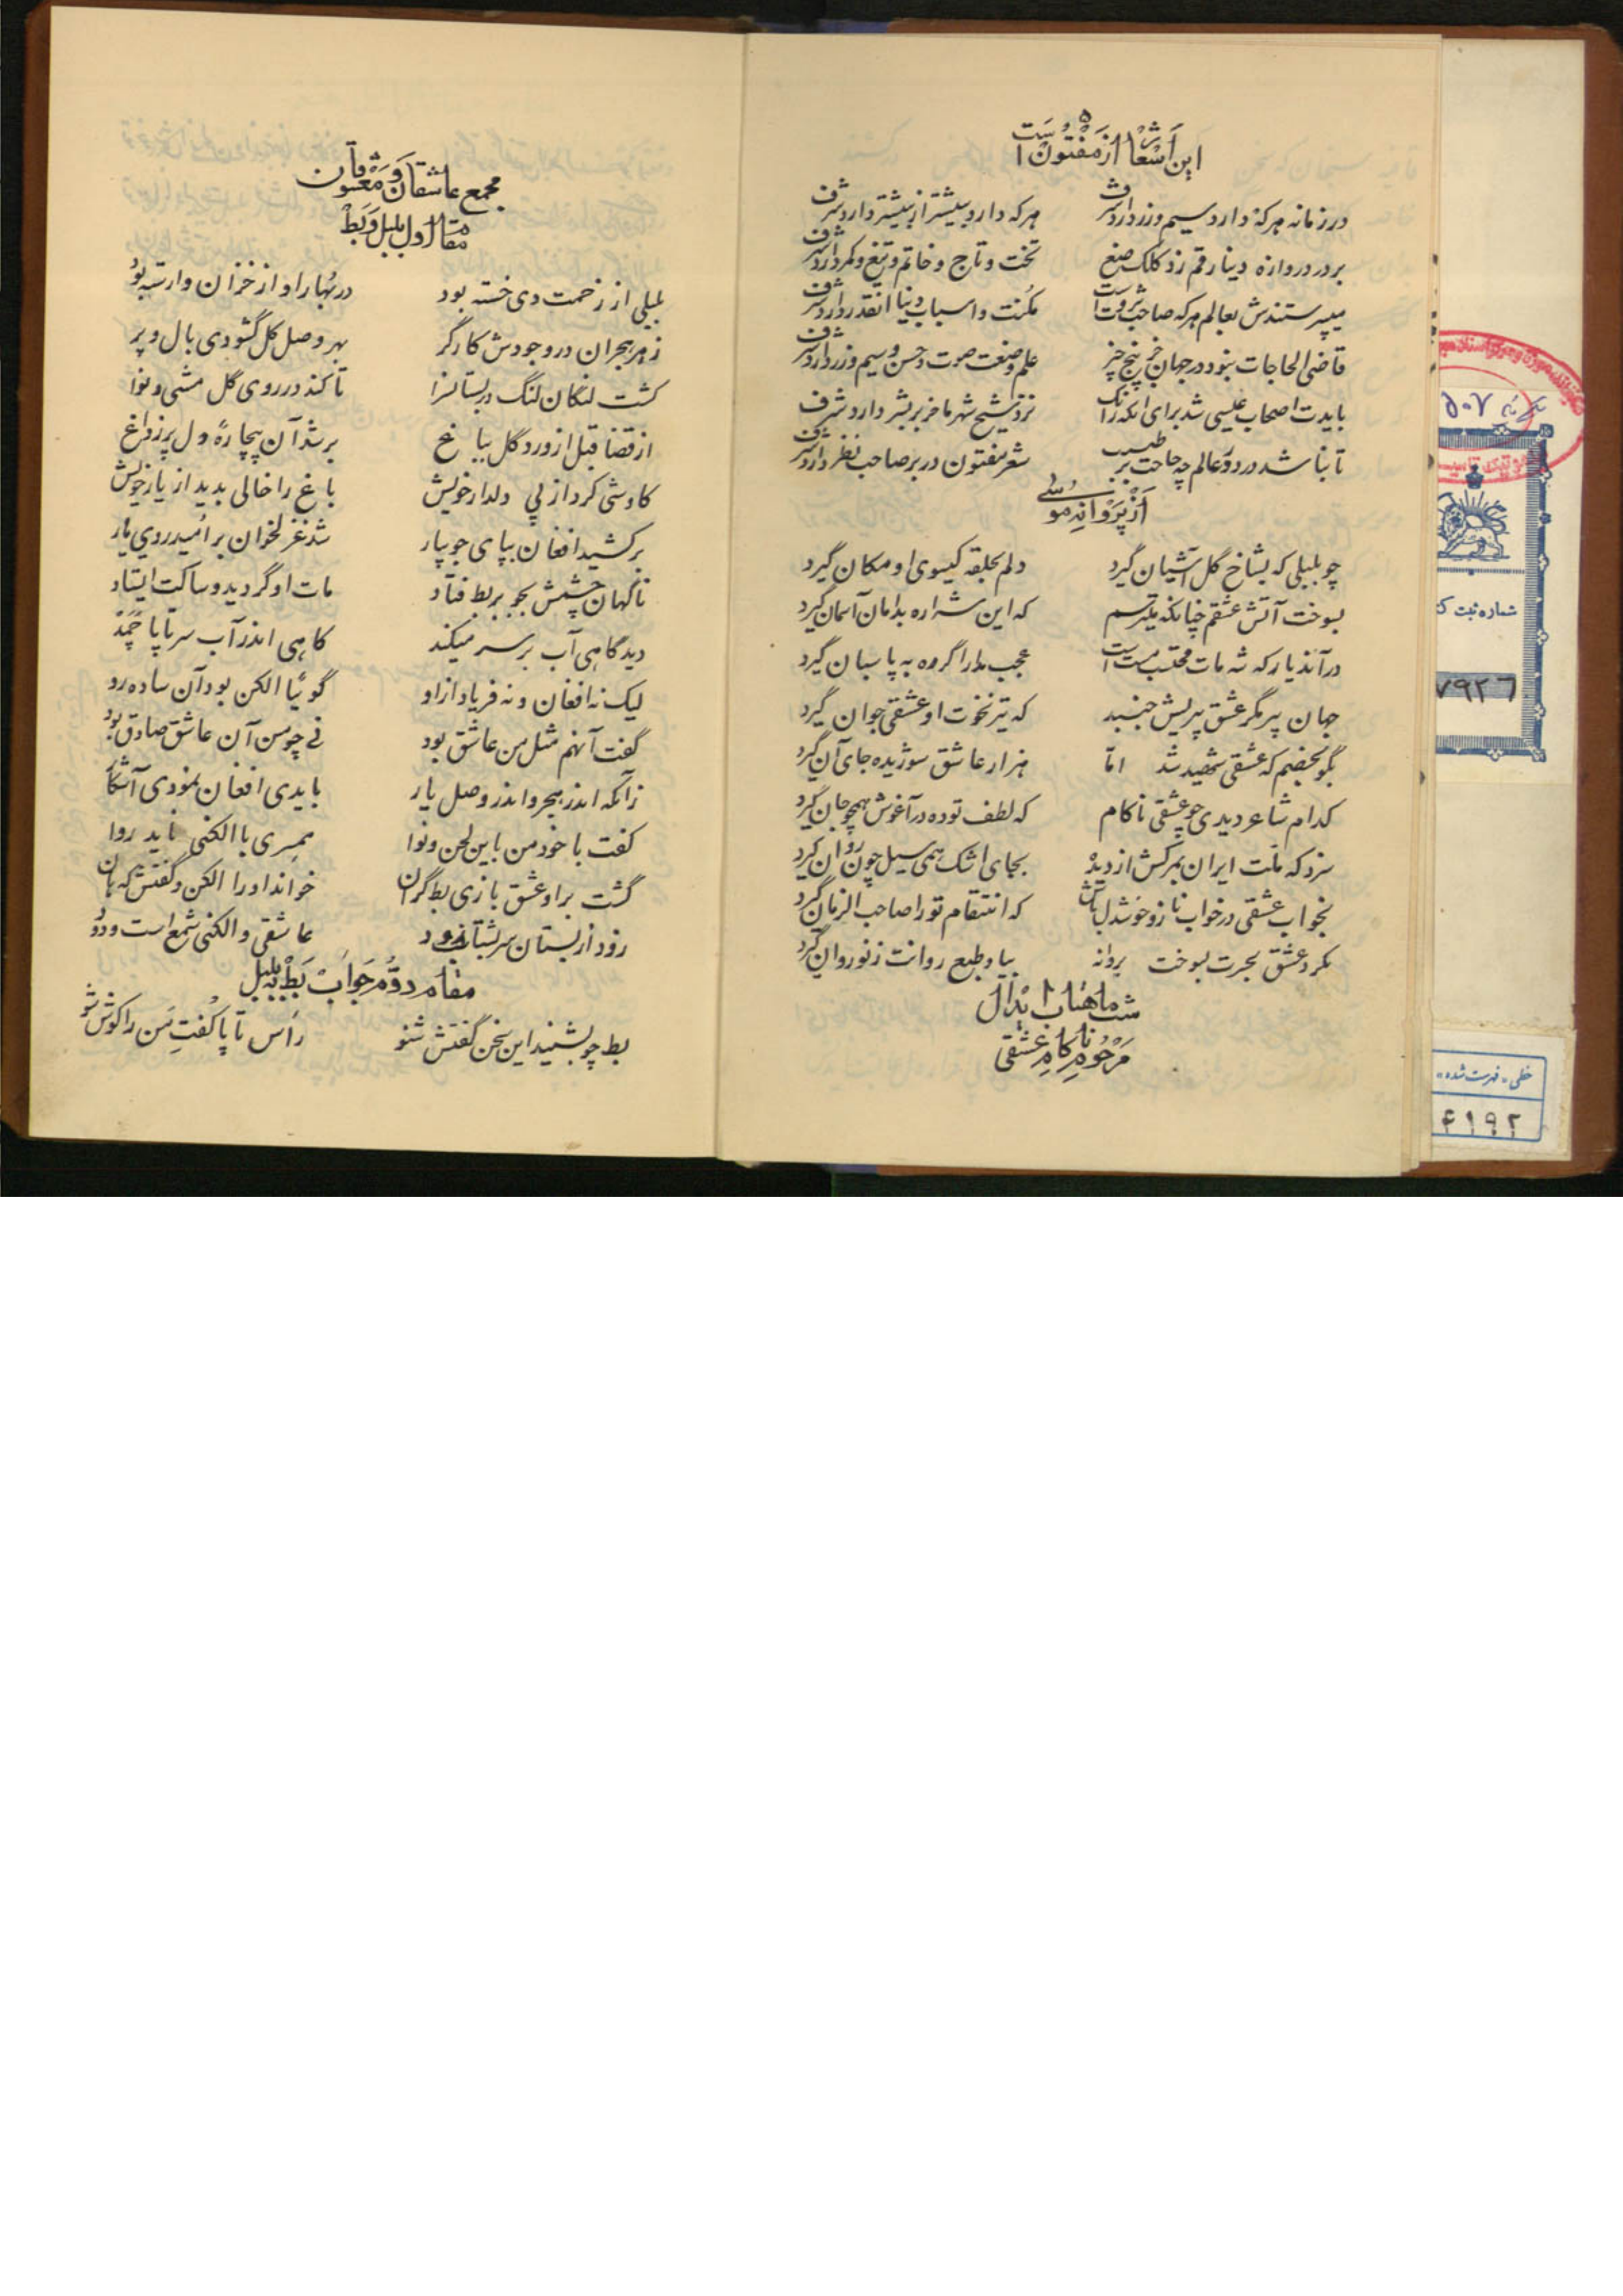 این اشعار از مفتون است
در زمانه هر که دارد سیم و زر دارد شرف هر که دارد بیشتر از بیشتر دارد شرف
بر در دروازه دینا رقم زد کلک صنع تخت و تاج و خاتم و تیغ و کمر دارد شرف
میپرستندش بعالم هر که صاحب ثروت است مکنت و اسباب دنیا آنقدر دارد شرف
قاضی الحاجات بنود در جهان خر پنج چیز علم و صنعت صوت و حسن و سیم و زر دارد شرف
بایدت اصحاب عیسی شد برای آنکه زانک نزد شیخ شهر ما خر بر بشر دارد شرف
تا بنا شد درد و عالم چه حاجت بر طبیب شعر مفتون در بر صاحب نظر دارد شرف
از پروانه موسی
چو بلبلی که بشاخ گل آشیان گیرد دلم بحلقه گیسوی او مکان گیرد
بسوخت آتش عشقم چنانکه میترسم که این شراره بدامان آسمان گیرد
در آندیار که شه مات محتسب مست است عجب مدار اگر وه به پاسبان گیرد
جهان پیر مگر عشق پیریش جنبید که تیر نخوت او عشقی جوان گیرد
بگو بخصم که عشقی شهید شد اما هزار عاشق سوژیده جای آن گیرد
کدام شاعر دیدی چو عشقی ناکام که لطف توده در آغوش همچو جان گیرد
سزد که ملت ایران بمرگش از دیده بجای اشک همی سیل خون روان گیرد
بخواب عشقی در خواب ناز و خوشدل باش که انتقام تو را صاحب الزمان گیرد
مگرد عشق بحرت بسوخت پروانه بیا و طبع روانت ز نو روان گیرد
مرحوم ناکام عشقی
مجمع عاشقان و معشوقان
مقاله اول بلبل و بط
بلبلی از زحمت دی خسته بود در بهار او از خزان وارسته بود
زهر هجران در وجودش کارگر بهر وصل گل گشودی بال و پر
گشت لنگان لنگ در بستانسرا تا کند در روی گل مشی و نوا
از قضا قبل از ورود گل بباغ بر شد آن بیچاره دل پر ز داغ
کاوشی کرد از پی دلدار خویش باغ را خالی بدید از یار خویش
برکشید افغان بپای جویبار شد غزلخوان بر امید روی یار
ناگهان چشمش بجو بر بط فتاد مات او گردید و ساکت ایستاد
دید گاهی آب بر سر میکند گاهی اندر آب سر تا پا خمد
لیک نه افغان و نه فریاد از او گوئیا الکن بود آن ساده رو
گفت آنهم مثل من عاشق بود نی چو من آن عاشق صادق بود
زآنکه اندر هجر و اندر وصل یار بایدی افغان نمودی آشکار
گفت با خود من باین لحن و نوا همسری با الکنی ناید روا
گشت بر او عشق بازی بط گران خواند او را الکن و گفتش که هان
رود از بستان سر شتاب زود عاشقی و الکنی شمع است و دود
مقاله دوم جواب بط به بلبل
بط چو بشنید این سخن گفتش شنو راس تا پا گفت من را گوش شو
شماره ثبت ک
۷۹۲۶
خطی، فهرست شده،
۴۱۹۲